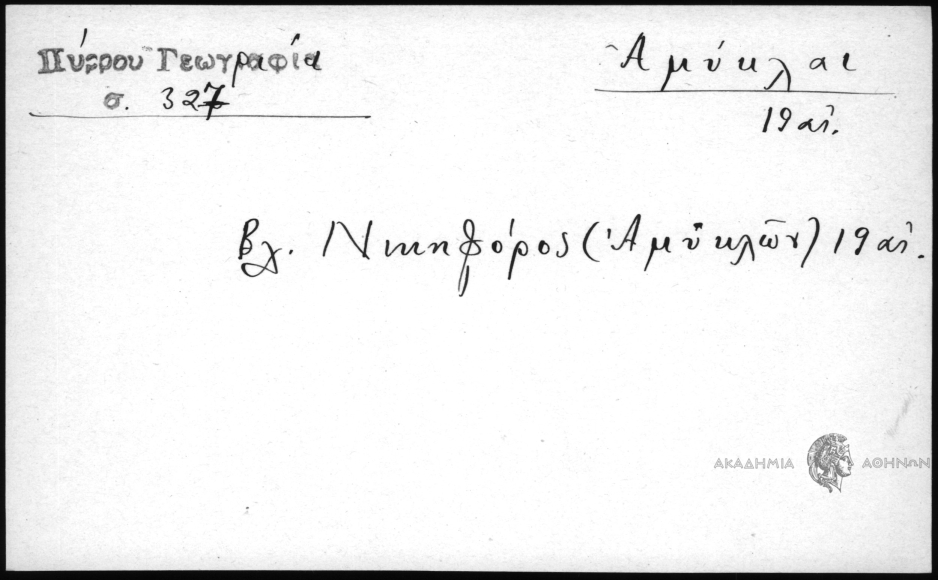 Πύρρου Γεωγραφία
σ. 327
Ἀμύκλαι
19 αἰ.
Βλ. Νικηφόρος (Ἀμυκλῶν) 19 αἰ.
ΑΚΑΔΗΜΙΑ ΑΘΗΝΩΝ